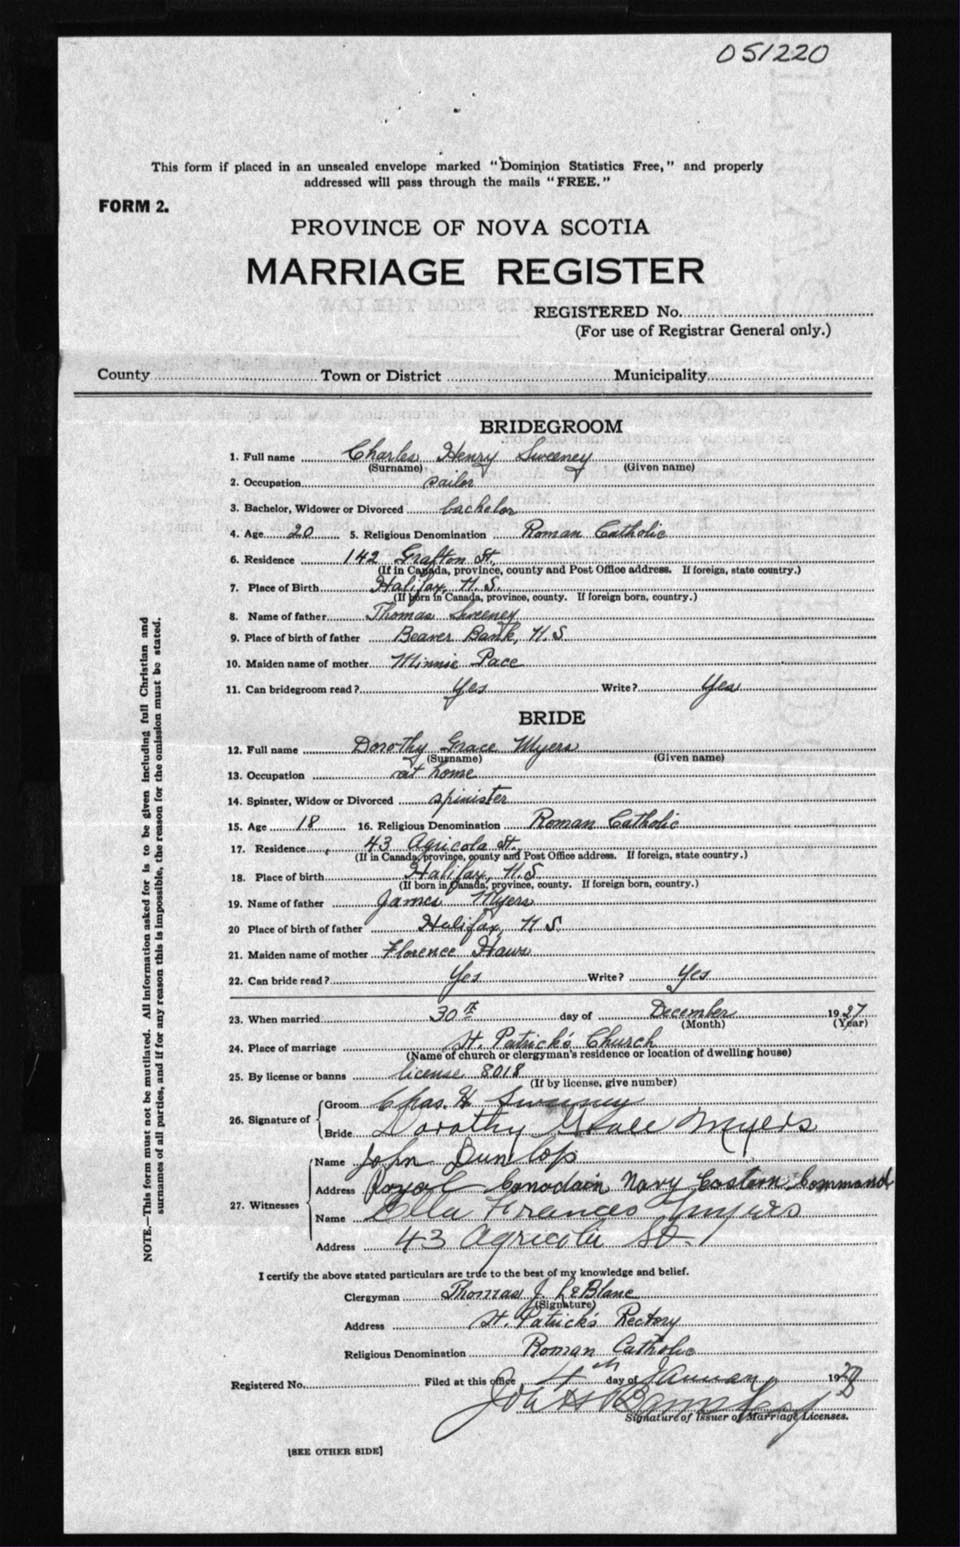 051220
This form if placed in an unsealed envelope marked "Dominion Statistics Free," and properly
addressed will pass through the mails "FREE."
FORM 2.
PROVINCE OF NOVA SCOTIA
MARRIAGE REGISTER
REGISTERED No.
(For use of Registrar General only.)
County Town or District Municipality
BRIDEGROOM
1. Full name Charles Henry Sweeney
(Surname) (Given name)
2. Occupation sailor
3. Bachelor, Widower or Divorced bachelor
4. Age 20 5. Religious Denomination Roman Catholic
6. Residence 142 Grafton St.
(If in Canada, province, county and Post Office address. If foreign, state country.)
7. Place of Birth Halifax, N.S.
(If born in Canada, province, county. If foreign born, country.)
8. Name of father Thomas Sweeney
9. Place of birth of father Beaver Bank, N.S.
10. Maiden name of mother Minnie Pace
11. Can bridegroom read? Yes Write? Yes
BRIDE
12. Full name Dorothy Grace Myers
(Surname) (Given name)
13. Occupation at home
14. Spinster, Widow or Divorced spinister
15. Age 18 16. Religious Denomination Roman Catholic
17. Residence 43 Agricola St.
(If in Canada, province, county and Post Office address. If foreign, state country.)
18. Place of birth Halifax, N.S.
(If born in Canada, province, county. If foreign born, country.)
19. Name of father James Myers
20 Place of birth of father Halifax, N.S.
21. Maiden name of mother Florence
22. Can bride read? Yes Write? Yes
23. When married 30th day of December 1927
(Month) (Year)
24. Place of marriage St. Patrick's Church
(Name of church or clergyman's residence or location of dwelling house)
25. By license or banns license 8018
(If by license, give number)
26. Signature of Groom Chas. H Sweeney
Bride Dorothy Grace Myers
27. Witnesses Name John Dunlop
Address Royal Canadain Navy Eastern Command
Name Ella Frances Myers
Address 43 Agricola St.
I certify the above stated particulars are true to the best of my knowledge and belief.
Clergyman Thomas J. LeBlanc
(Signature)
Address St. Patrick's Rectory
Religious Denomination Roman Catholic
Registered No. Filed at this office 4th day of January 192
Signature of Issuer of Marriage Licenses.
[SEE OTHER SIDE]
NOTE.—This form must not be mutilated. All information asked for is to be given including full Christian and
surnames of all parties, and if for any reason this is impossible, the reason for the omission must be stated.